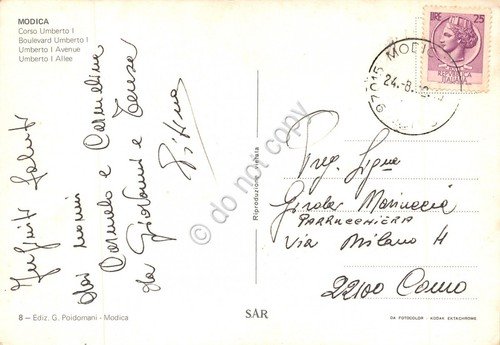 MODICA
Corso Umberto I
Boulevard Umberto I
Umberto I Avenue
Umberto I Allee
Infiniti saluti
dai nonni
Carmelo e Carmelina
da Giovanni e Teresa
LIRE 25
REPUBBLICA
ITALIANA
97015 MODICA
24.-8.
do not copy
Riproduzione vietata
Preg. Sig.na
Mariuccia
PARRUCCHIERA
Via Milano 4
22100 Como
8 — Ediz. G. Poidomani - Modica
SAR
DA FOTOCOLOR KODAK EKTACHROME